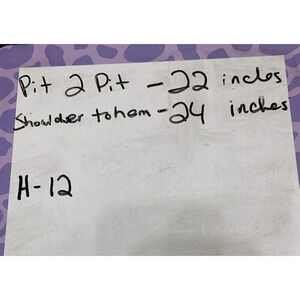 Pit 2 Pit - 22 inches
Shoulder to hem - 24 inches
H-12